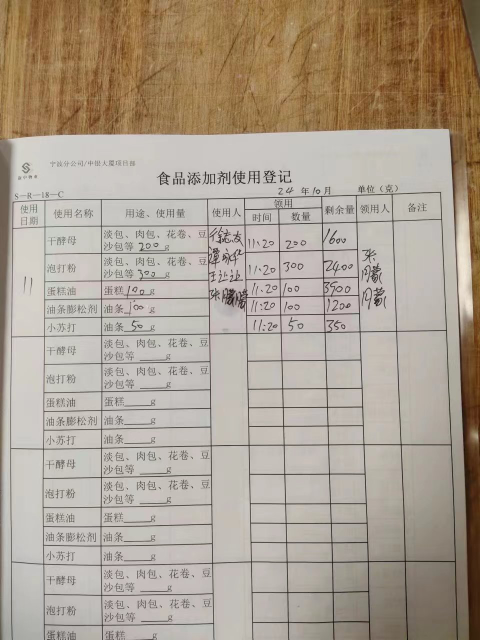 宁波分公司/中银大厦项目部
食品添加剂使用登记
S—R—18—C
24 年 10 月 单位(克)
使用日期 使用名称 用途、使用量 使用人 领用 剩余量 领用人 备注
时间 数量
11
干酵母 淡包、肉包、花卷、豆沙包等 200 g 11:20 200 1600
泡打粉 淡包、肉包、花卷、豆沙包等 300 g 11:20 300 2400
蛋糕油 蛋糕 100 g 11:20 100 3500
油条膨松剂 油条 100 g 11:20 100 1200
小苏打 油条 50 g 11:20 50 350
干酵母 淡包、肉包、花卷、豆沙包等 ____g
泡打粉 淡包、肉包、花卷、豆沙包等 ____g
蛋糕油 蛋糕____g
油条膨松剂 油条____g
小苏打 油条____g
干酵母 淡包、肉包、花卷、豆沙包等 ____g
泡打粉 淡包、肉包、花卷、豆沙包等 ____g
蛋糕油 蛋糕____g
油条膨松剂 油条____g
小苏打 油条____g
干酵母 淡包、肉包、花卷、豆沙包等 ____g
泡打粉 淡包、肉包、花卷、豆沙包等 ____g
蛋糕油 蛋糕____g